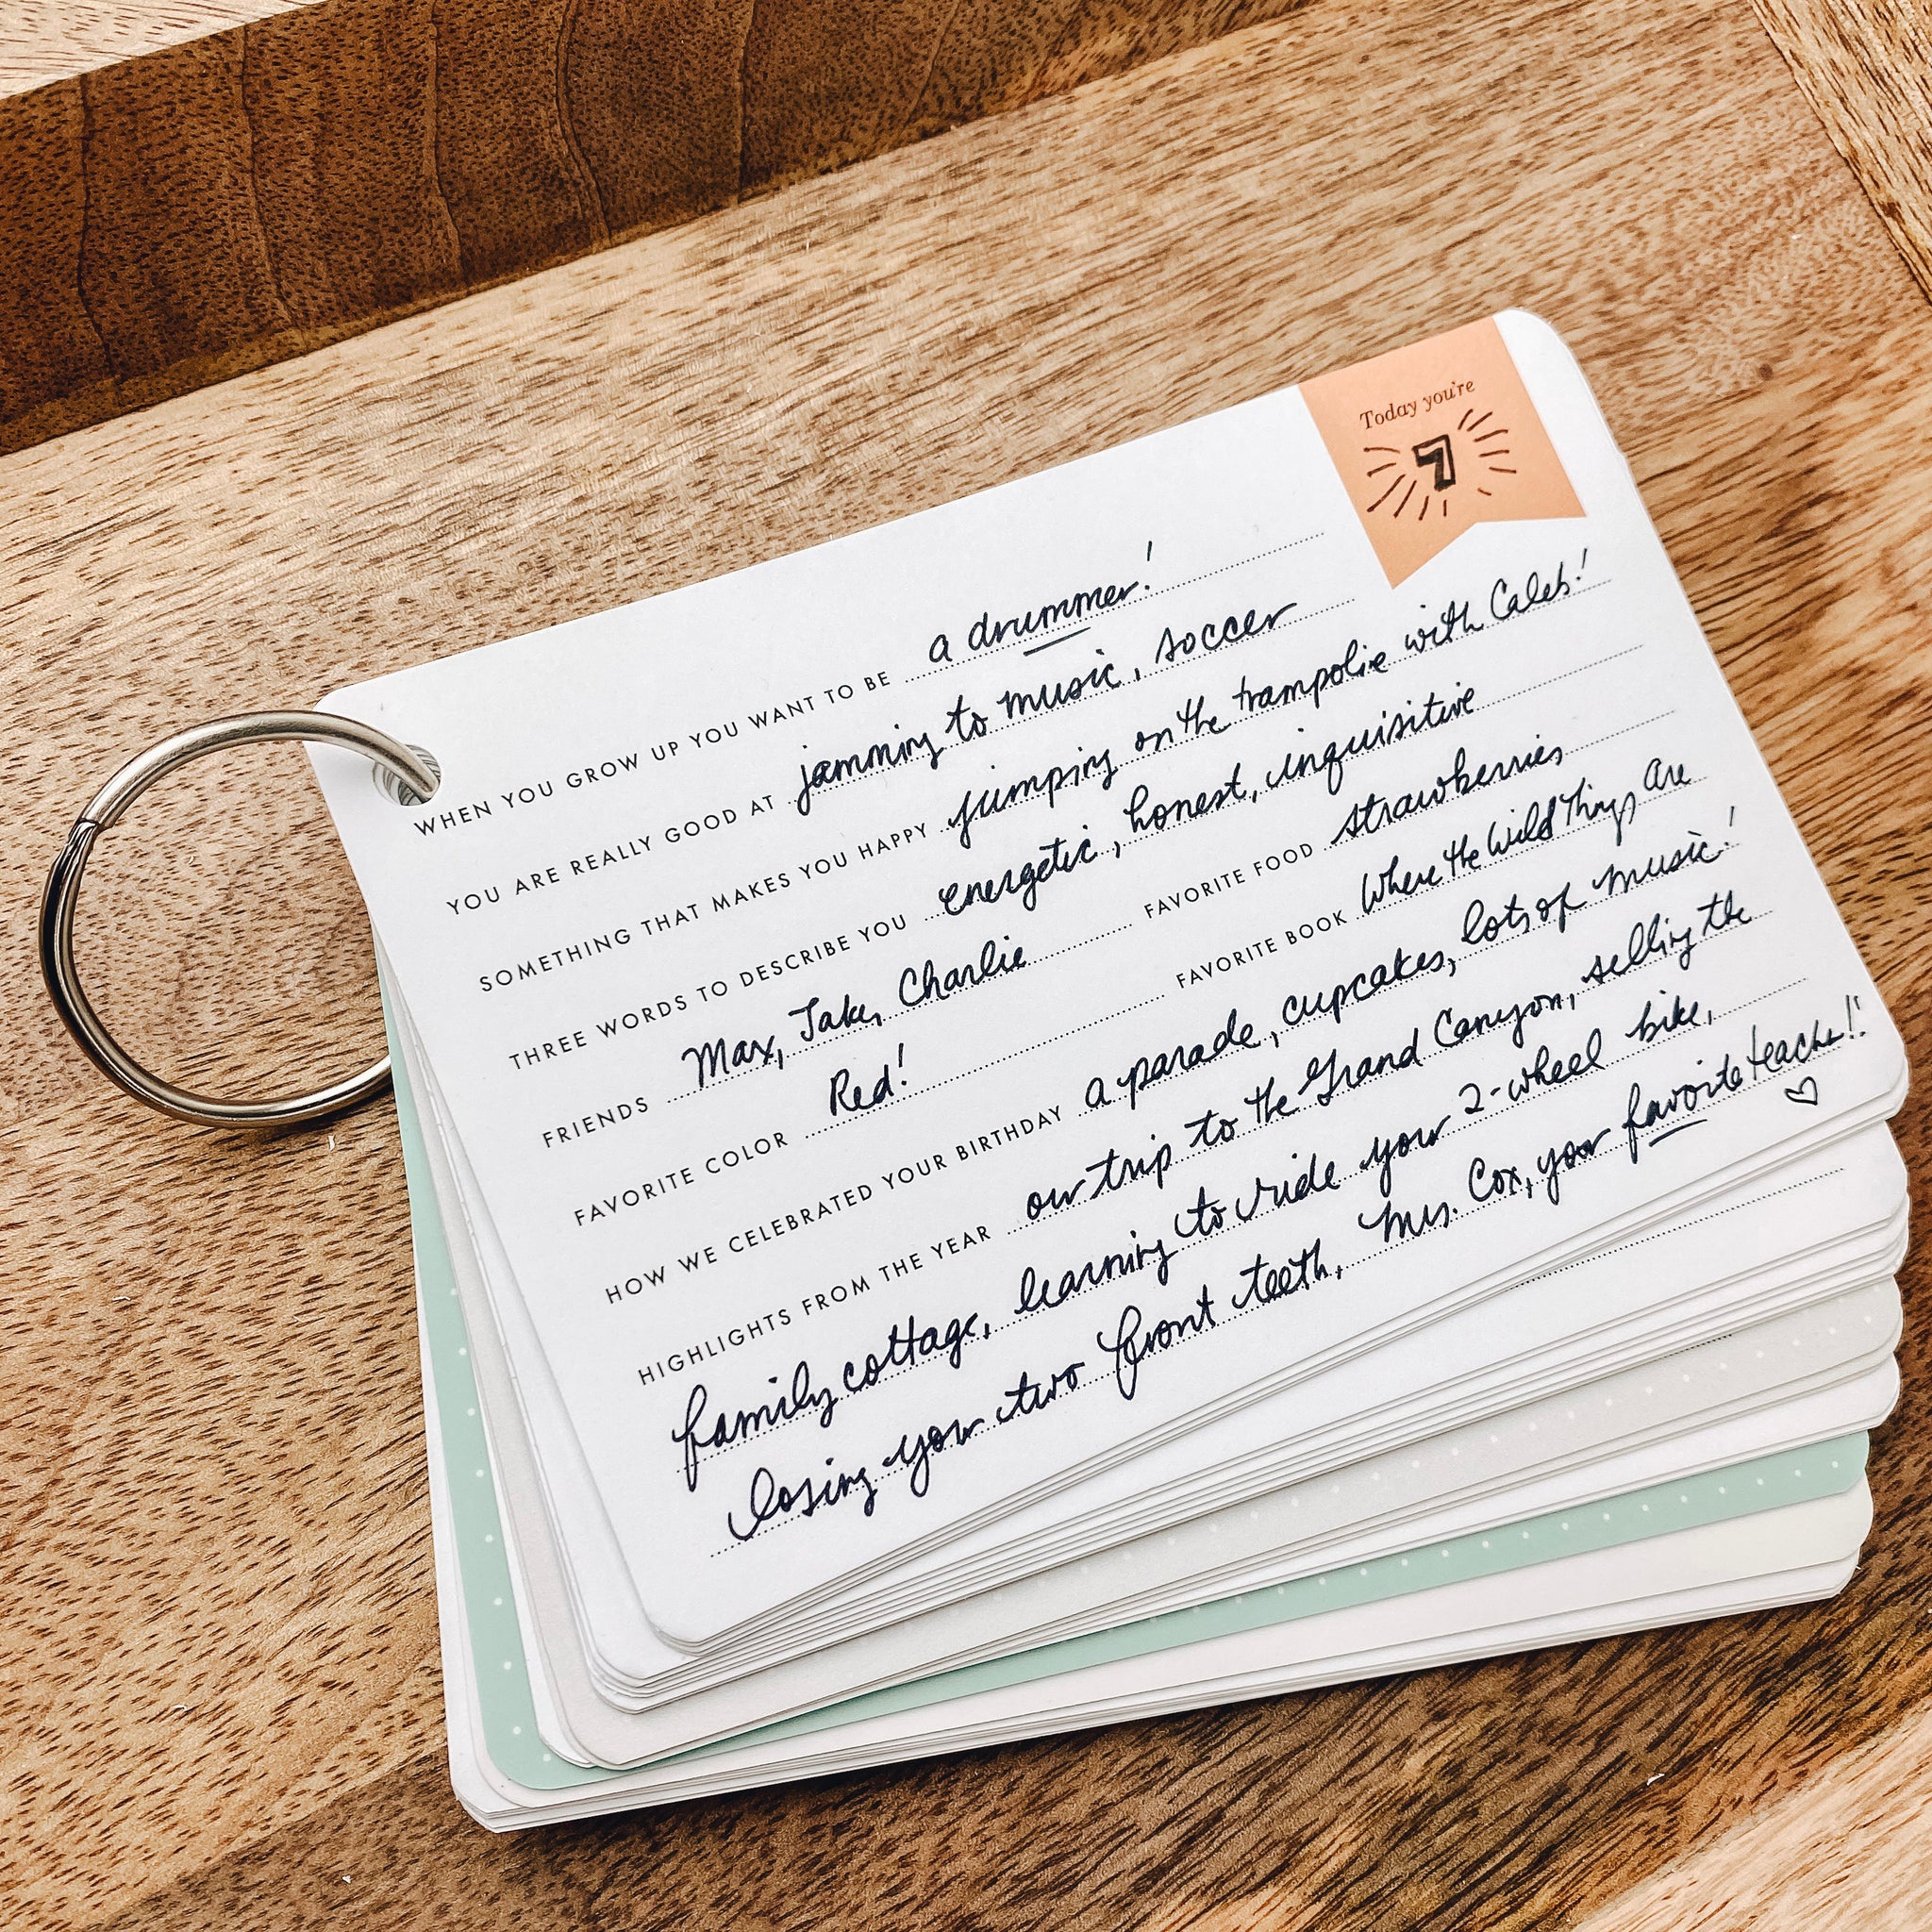 Today you're
7
WHEN YOU GROW UP YOU WANT TO BE a drummer!
YOU ARE REALLY GOOD AT jamming to music, soccer
SOMETHING THAT MAKES YOU HAPPY jumping on the trampolie with Caleb!
THREE WORDS TO DESCRIBE YOU energetic, honest, inquisitive
FRIENDS Max, Jake, Charlie FAVORITE FOOD strawberries
FAVORITE COLOR Red! FAVORITE BOOK Where the Wild Things are
HOW WE CELEBRATED YOUR BIRTHDAY a parade, cupcakes, lots of music!
HIGHLIGHTS FROM THE YEAR our trip to the Grand Canyon, selling the
family cottage, learning to ride your 2-wheel bike,
losing your two front teeth, Mrs. Cox, your favorite teacher!!